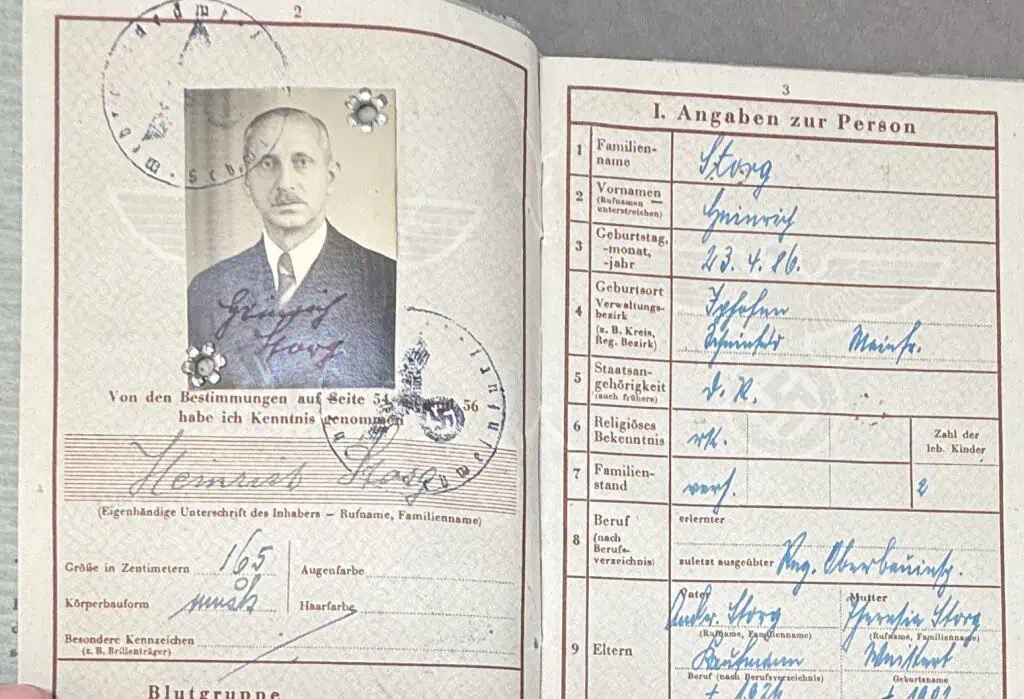 2
Heinrich
Storg
Von den Bestimmungen auf Seite 54 56
habe ich Kenntnis genommen
Heinrich Storg
(Eigenhändige Unterschrift des Inhabers – Rufname, Familienname)
Größe in Zentimetern 165
Augenfarbe
Körperbauform
Haarfarbe
Besondere Kennzeichen
(z. B. Brillenträger)
Blutgruppe
3
I. Angaben zur Person
1 Familien-
name
Storg
2 Vornamen
(Rufnamen
unterstreichen)
Heinrich
3 Geburtstag,
-monat,
-jahr
23. 4. 86.
4 Geburtsort
Verwaltungs-
bezirk
(z. B. Kreis,
Reg. Bezirk)
Iphofen
Scheinfeld Mainfr.
5 Staatsan-
gehörigkeit
(auch frühere)
D. R.
6 Religiöses
Bekenntnis
rk.
Zahl der
leb. Kinder
7 Familien-
stand
verh.
2
8 Beruf
(nach
Berufs-
verzeichnis)
erlernter
zuletzt ausgeübter Reg. Oberbauinsp.
9 Eltern
Vater
Andr. Storg
(Rufname, Familienname)
Kaufmann
Beruf (nach Berufsverzeichnis)
Mutter
Theresia Storg
(Rufname, Familienname)
Geburtsname